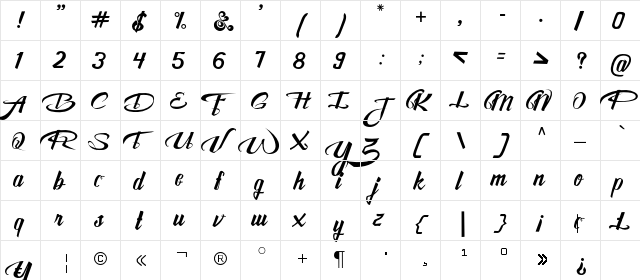 ! " # $ % & ' ( ) * + , - . / 0
1 2 3 4 5 6 7 8 9 : ; < = > ? @
A B C D E F G H I J K L M N O P
Q R S T U V W X Y Z [ \ ] ^ _ `
a b c d e f g h i j k l m n o p
q r s t u v w x y z { | } ¡ ¢ £
¥ ¦ © « ¬ ® ° + ¶ · ¸ ¹ º » ¿